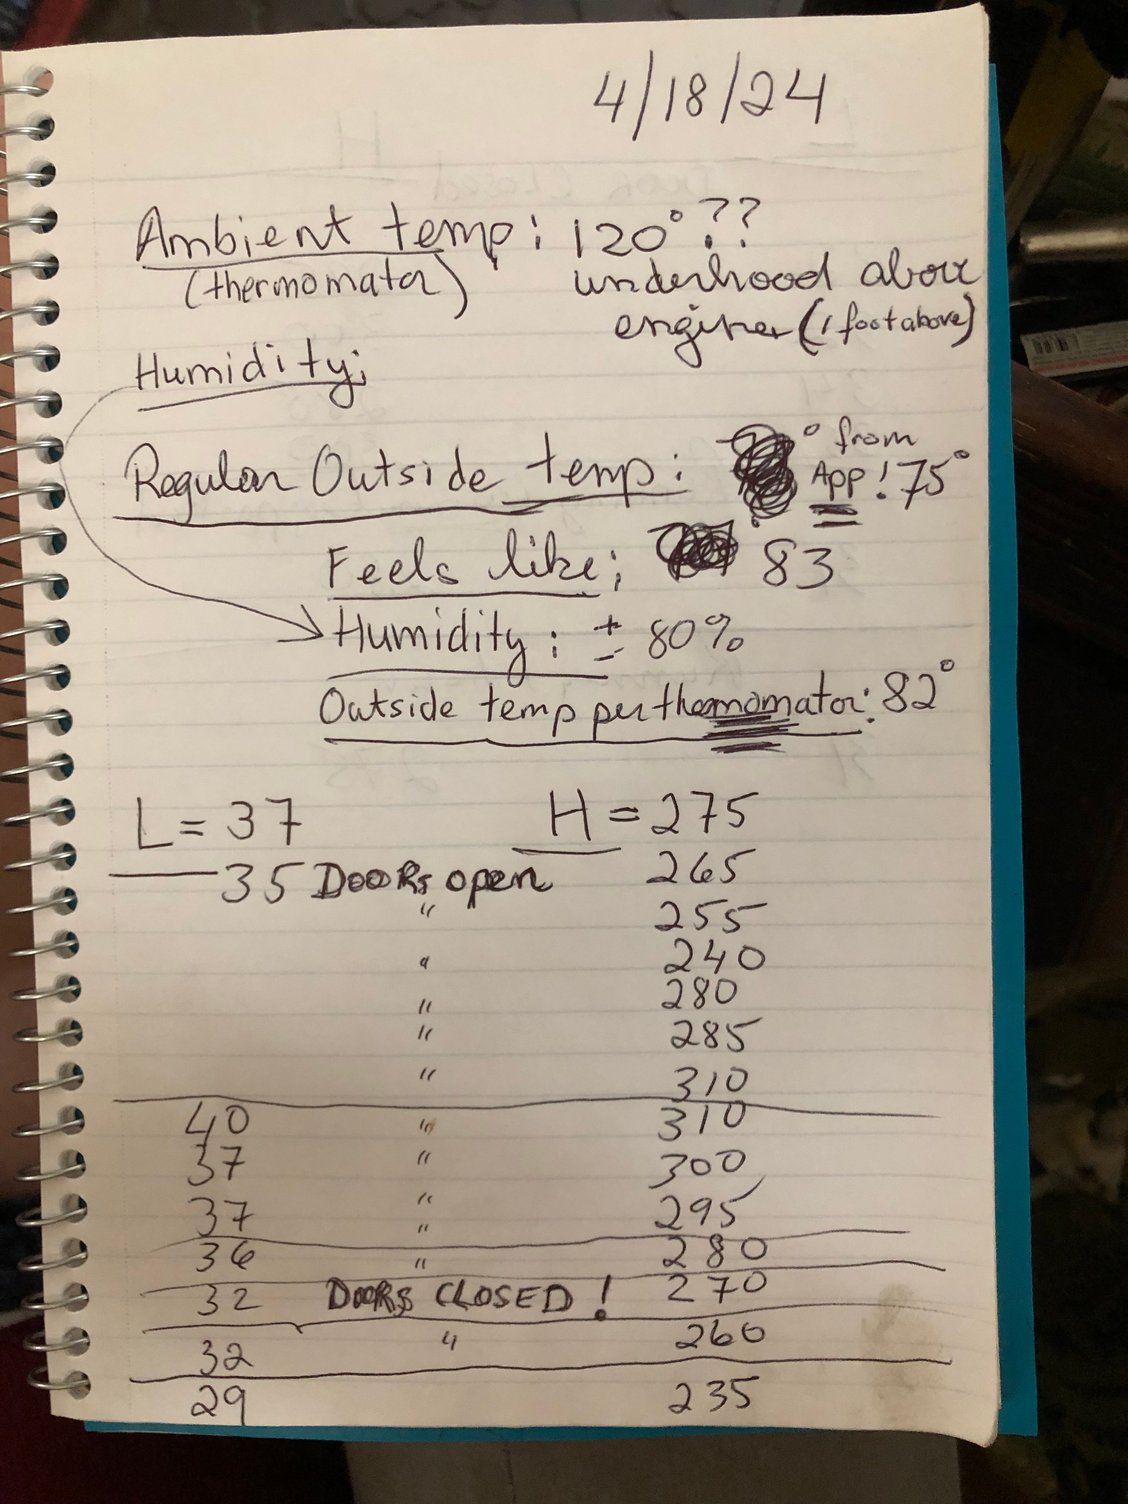 4/18/24
Ambient temp: 120°??
(thermomator) underhood above
engine (1 foot above)
Humidity:
Regular Outside temp: ° from
App! 75°
Feels like: 83
Humidity: ± 80%
Outside temp per thermomator: 82°
L = 37 H = 275
35 DOORS open 265
" 255
" 240
" 280
" 285
" 310
40 " 310
37 " 300
37 " 295
36 " 280
32 DOORS CLOSED! 270
32 " 260
29 235